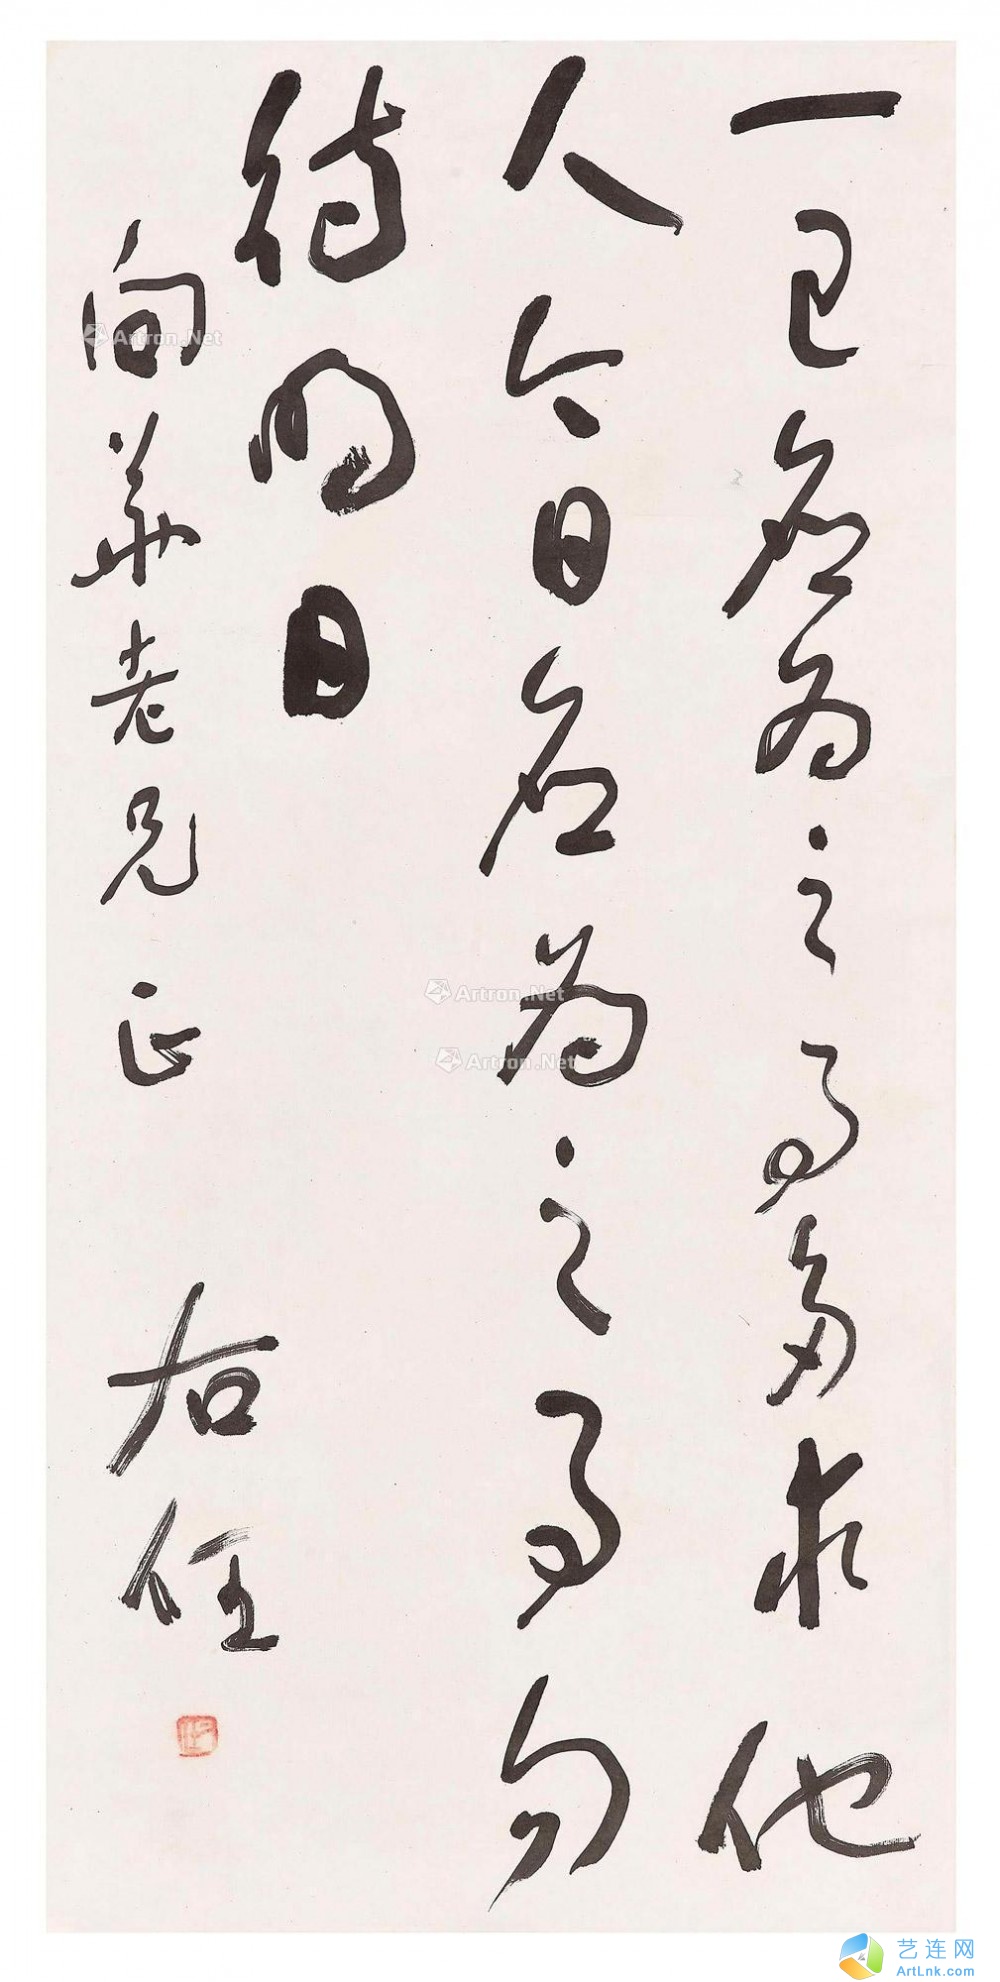 一己應為之事勿求他
人今日應為之事勿
待明日
向華老兄正 右任
Artron.Net
Artron.Net
Artron.Net
艺连网
ArtLnk.com